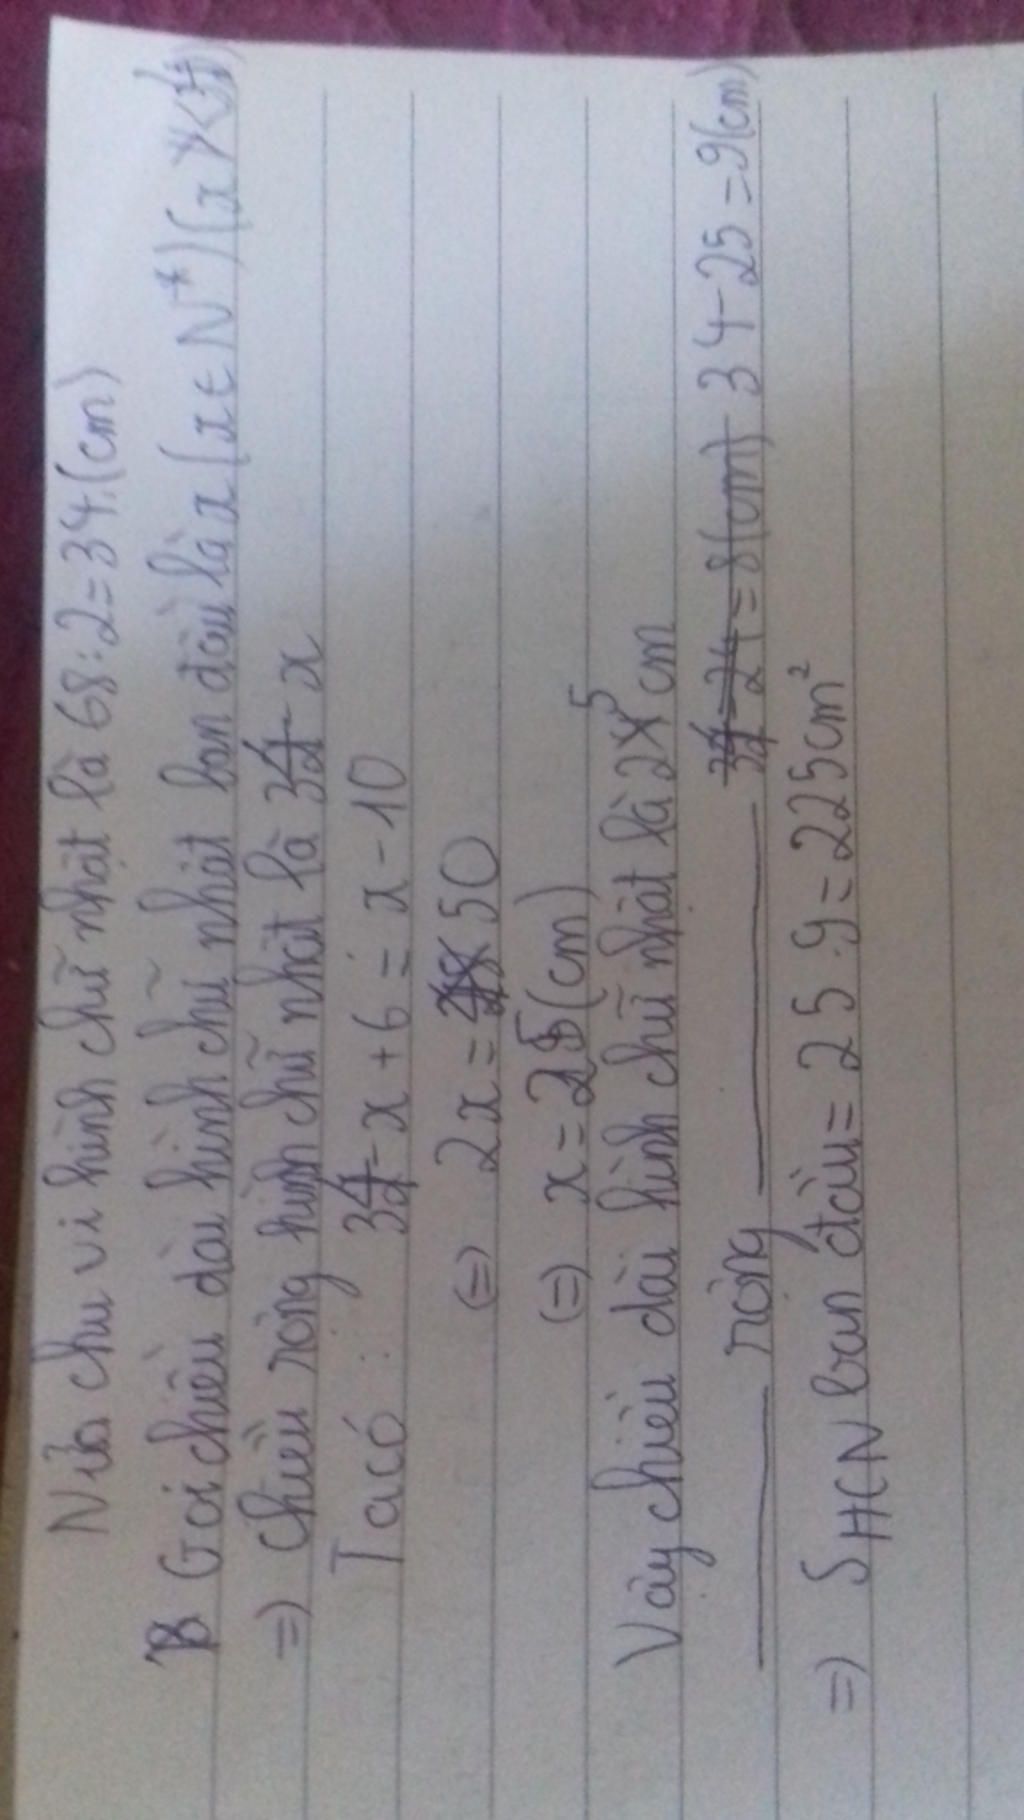 Nửa chu vi hình chữ nhật là 68:2=34.(cm)
Gọi chiều dài hình chữ nhật ban đầu là x (x ∈ N*)
=) Chiều rộng hình chữ nhật là 34-x
Ta có: 34-x+6=x-10
(=) 2x=50
(=) x=25(cm)
Vậy chiều dài hình chữ nhật là 25cm
rộng 34-24=8(cm) 34-25=9(cm)
=) SHCN ban đầu = 25.9=225cm²